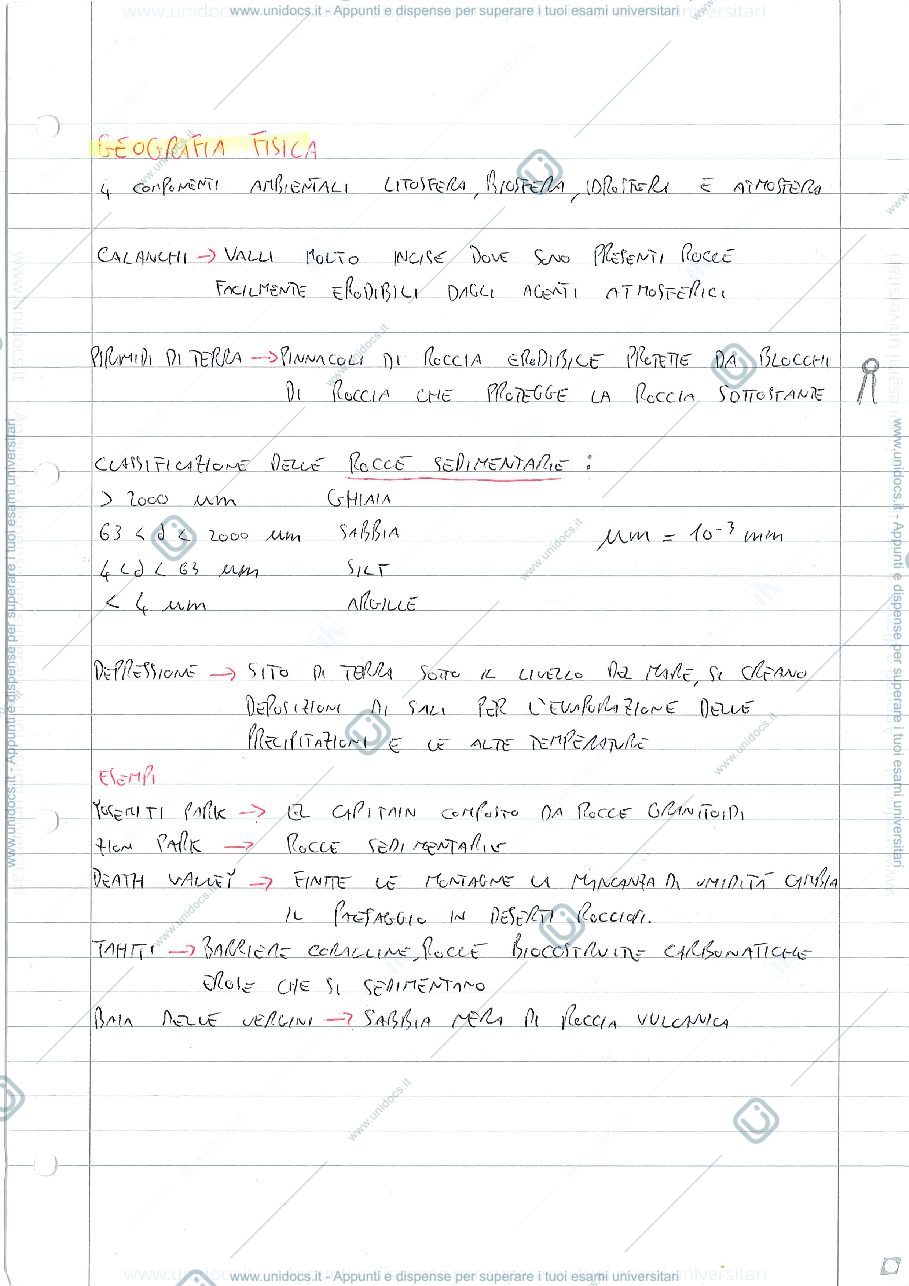 www.unidocs.it - Appunti e dispense per superare i tuoi esami universitari
GEOGRAFIA FISICA
4 COMPONENTI AMBIENTALI LITOSFERA, BIOSFERA, IDROSFERA E ATMOSFERA
CALANCHI → VALLI MOLTO INCISE DOVE SONO PRESENTI ROCCE
FACILMENTE ERODIBILI DAGLI AGENTI ATMOSFERICI
PIRAMIDI DI TERRA → PINNACOLI DI ROCCIA ERODIBILE PROTETTE DA BLOCCHI
DI ROCCIA CHE PROTEGGE LA ROCCIA SOTTOSTANTE
CLASSIFICAZIONE DELLE ROCCE SEDIMENTARIE :
> 2000 μm GHIAIA
63 < d < 2000 μm SABBIA μm = 10⁻³ mm
4 < d < 63 μm SILT
< 4 μm ARGILLE
DEPRESSIONE → SITO DI TERRA SOTTO IL LIVELLO DEL MARE, SI CREANO
DEPOSIZIONI DI SALI PER L'EVAPORAZIONE DELLE
PRECIPITAZIONI E LE ALTE TEMPERATURE
ESEMPI
YOSEMITI PARK → EL CAPITAIN COMPOSTO DA ROCCE GRANITOIDI
ZION PARK → ROCCE SEDIMENTARIE
DEATH VALLEY → FINITE LE MONTAGNE LA MANCANZA DI UMIDITÁ CAMBIA
IL PAESAGGIO IN DESERTI ROCCIOSI.
TAHITI → BARRIERE CORALLINE, ROCCE BIOCOSTRUITE CARBONATICHE
EROSE CHE SI SEDIMENTANO
BAIA DELLE VERGINI → SABBIA NERA DI ROCCIA VULCANICA
www.unidocs.it - Appunti e dispense per superare i tuoi esami universitari